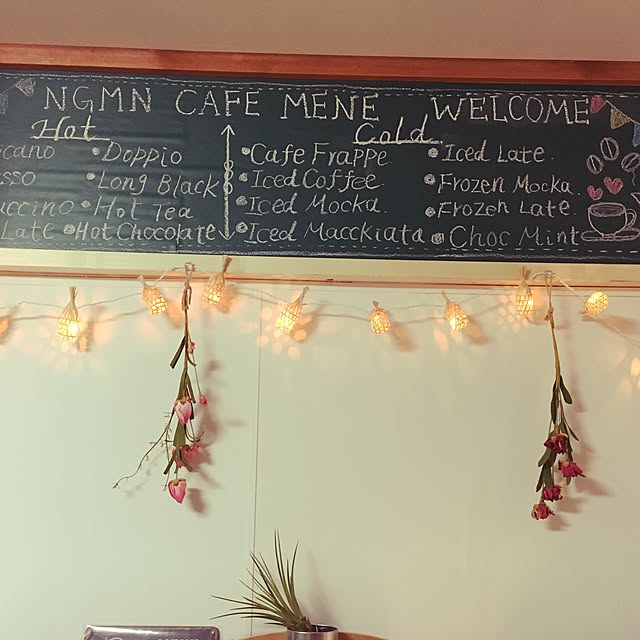 NGMN CAFE MENE WELCOME
Hot
cano • Doppio
sso • Long Black
uccino • Hot Tea
Late • Hot Chocolate
Cold
• Cafe Frappe • Iced Late.
• Iced Coffee. • Frozen Mocka.
• Iced Mocka. • Frozen Late.
• Iced Macckiata • Choc Mint